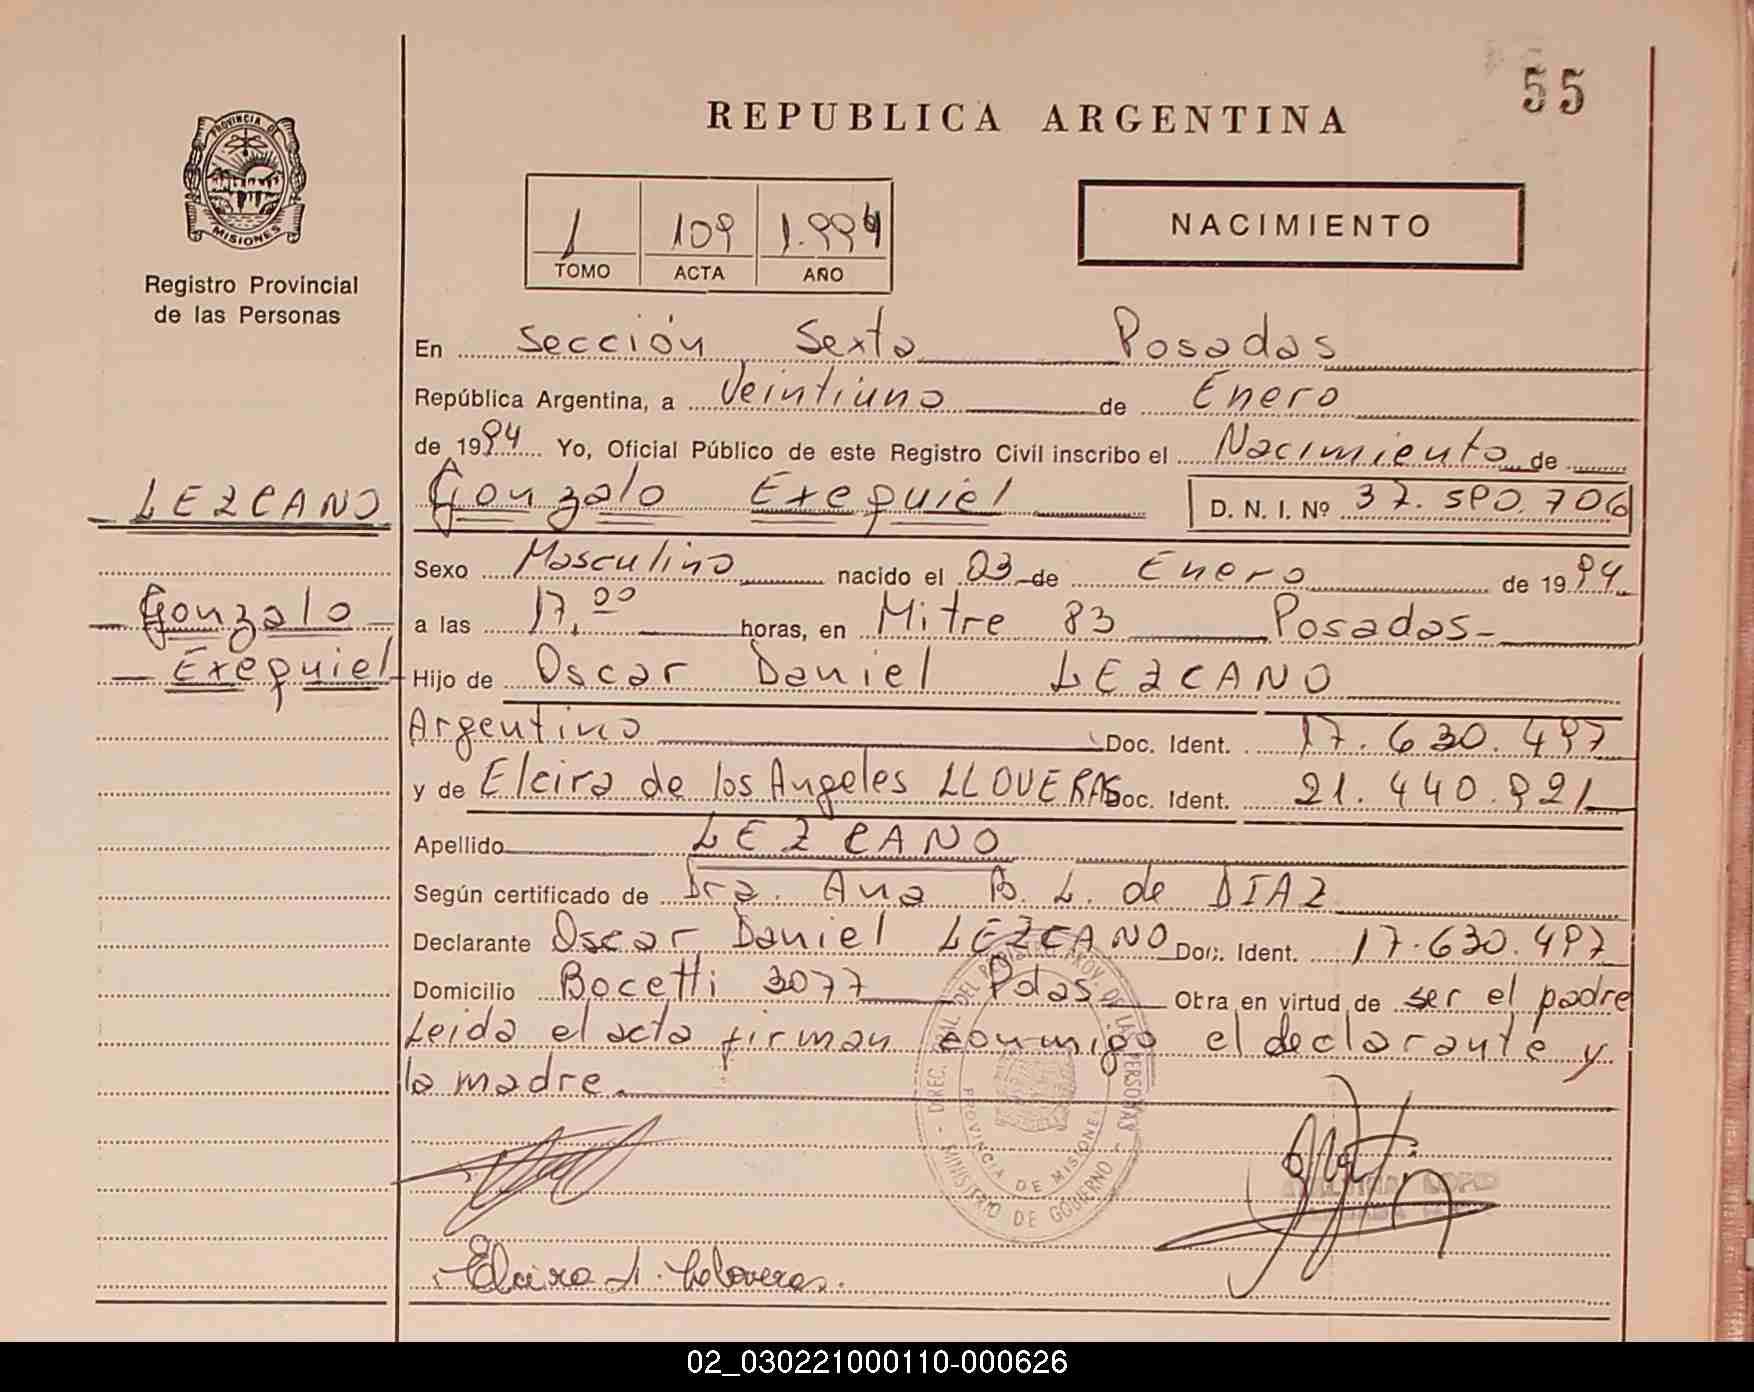 55
REPUBLICA ARGENTINA
PROVINCIA DE
MISIONES
Registro Provincial
de las Personas
1 109 1.994
TOMO ACTA AÑO
NACIMIENTO
En Sección Sexta Posadas
República Argentina, a Veintiuno de Enero
de 1994 Yo, Oficial Público de este Registro Civil inscribo el Nacimiento de
LEZCANO
Gonzalo Exequiel D. N. I. Nº 37.590.706
Sexo Masculino nacido el 03 de Enero de 1994
Gonzalo
Exequiel
a las 17,00 horas, en Mitre 83 Posadas
Hijo de Oscar Daniel LEZCANO
Argentino Doc. Ident. 17.630.497
y de Elcira de los Angeles LLOVERAS Doc. Ident. 21.440.921
Apellido LEZCANO
Según certificado de Dra. Ana B. L. de DIAZ
Declarante Oscar Daniel LEZCANO Doc. Ident. 17.630.497
Domicilio Bocetti 3077 Pdas Obra en virtud de ser el padre
Leida el acta firman conmigo el declarante y
la madre.
DIREC. GRAL. DEL REGISTRO PROV. DE LAS PERSONAS
PROVINCIA DE MISIONES
MINISTERIO DE GOBIERNO
Elcira A. Lloveras.
02_030221000110-000626